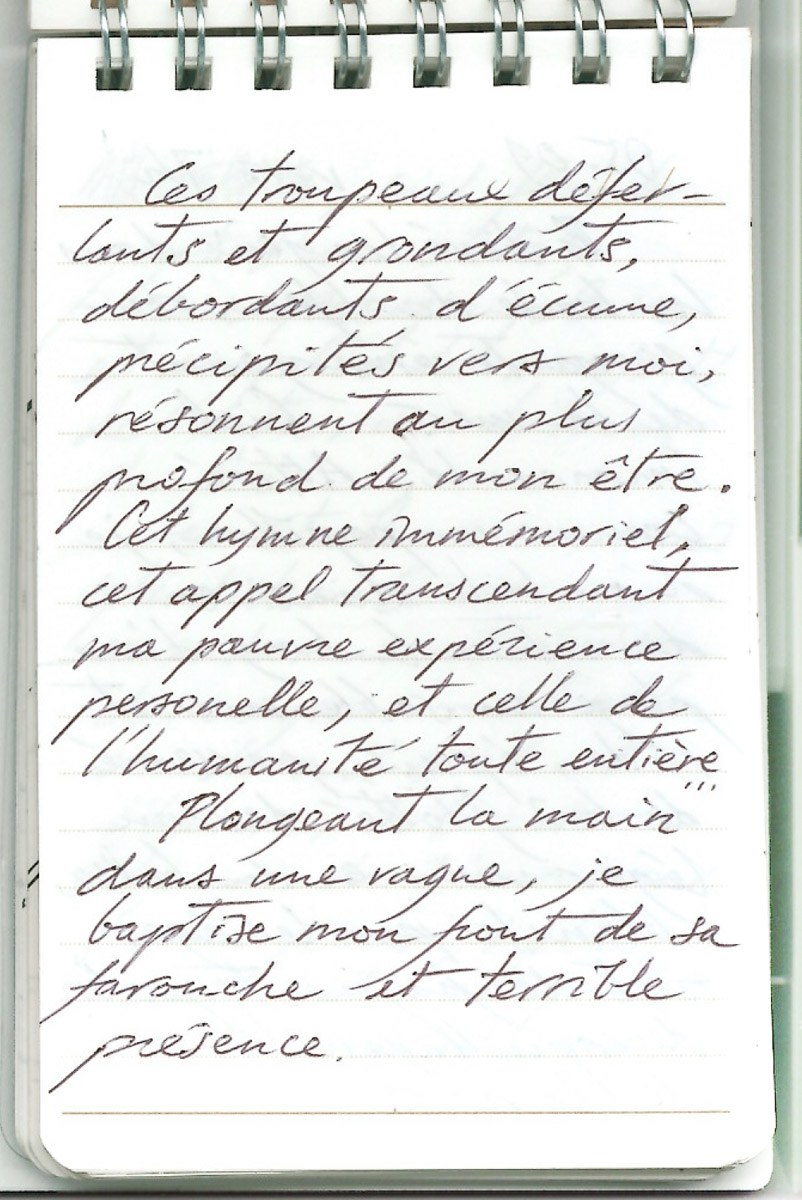 Ces troupeaux défer-
lants et grondants,
débordants d'écume,
précipités vers moi,
résonnent au plus
profond de mon être.
Cet hymne immémoriel,
cet appel transcendant
ma pauvre expérience
personelle, et celle de
l'humanité toute entière
...
Plongeant la main
dans une vague, je
baptise mon front de sa
farouche et terrible
présence.